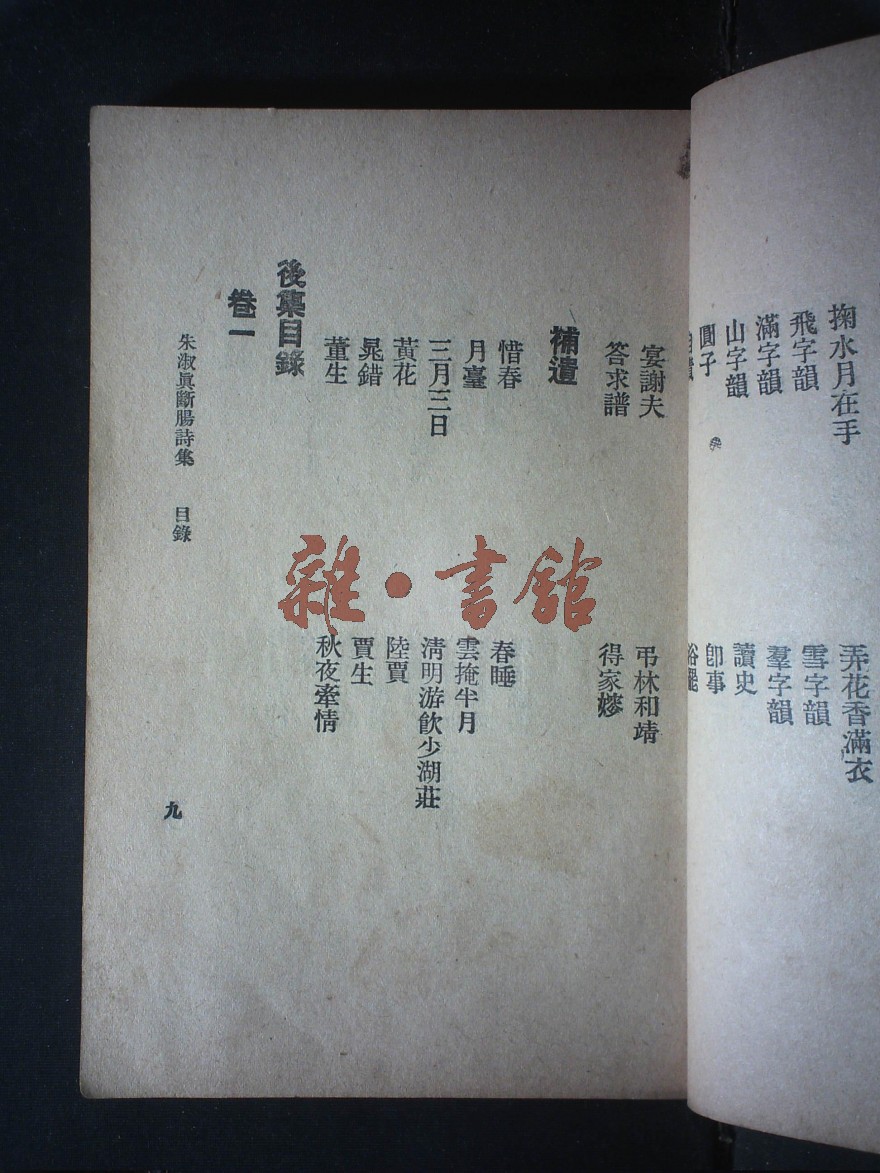 掬水月在手
弄花香滿衣
飛字韻
雪字韻
滿字韻
羣字韻
山字韻
讀史
圓子
卽事
宴謝夫
弔林和靖
答求譜
得家嫂
補遺
惜春
春睡
月臺
雲掩半月
三月三日
淸明游飮少湖莊
黃花
陸賈
晁錯
賈生
董生
秋夜牽情
後集目錄
卷一
朱淑眞斷腸詩集 目錄
九
雜·書館